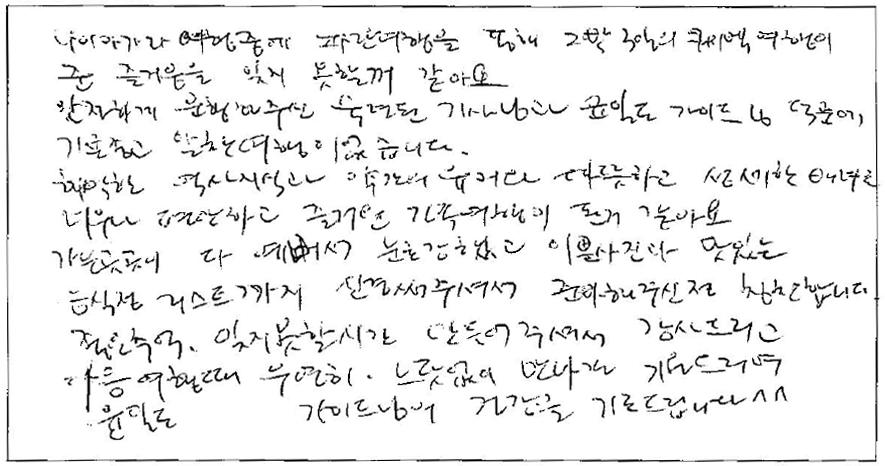 나이아가라 여행중에 파란여행을 통해 2박 3일의 퀘백여행이
준 즐거움을 잊지 못할꺼 같아요
안전하게 운행해주신 기사님과 윤일도 가이드님 덕분에,
기분좋고 알찬여행이었습니다.
해박한 역사지식과 약간의 유머와 따뜻하고 섬세한 안내로
너무나 편안하고 즐거운 가족여행이 된거 같아요
가는곳곳이 다 예뻐서 눈호강했고 이쁜사진과 맛있는
음식점 리스트까지 신경써주셔서 준비해주신점 칭찬합니다
좋은추억, 잊지못할시간 만들어주셔서 감사드리고
다음 여행때 우연히. 만나길 기원드리며
윤일도 가이드님의 건강을 기원드립니다^^